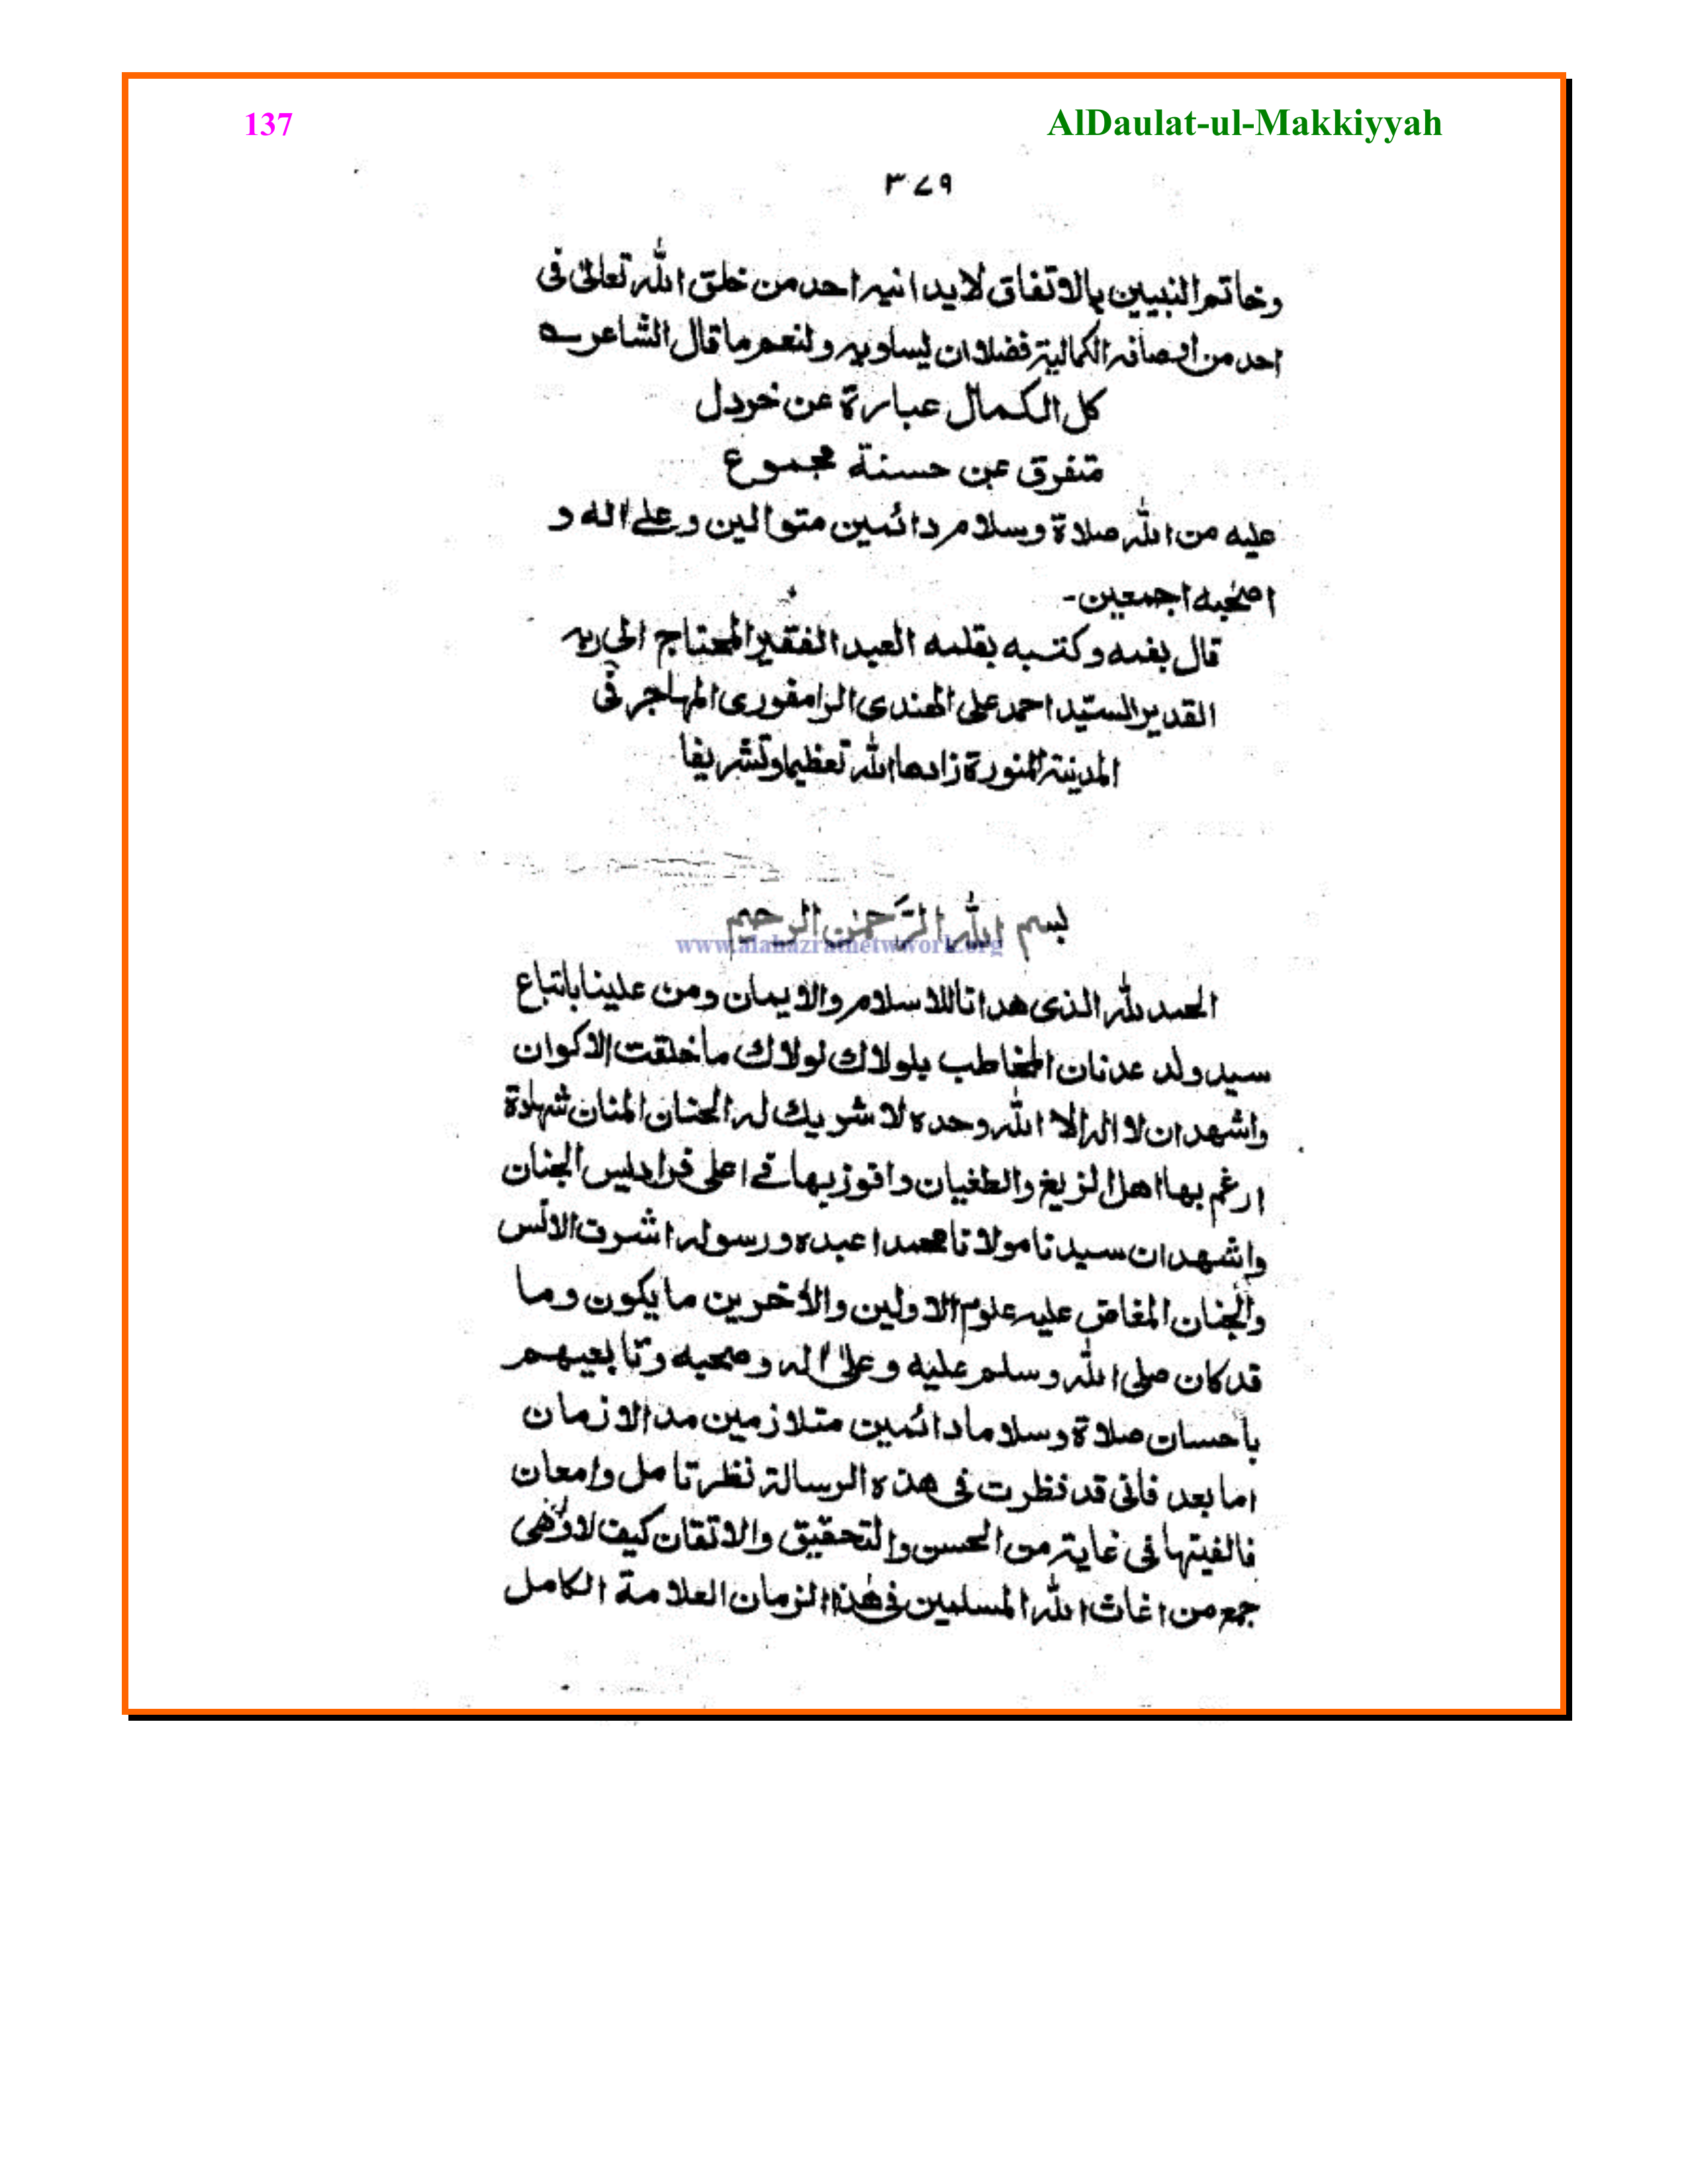 137 AlDaulat-ul-Makkiyyah
٣٧٩
وخاتم النبيين بالاتفاق لايدانيه احد من خلق الله تعالىٰ فى
احد من اوصافه الكمالية فضلا ان يساويه ولنعم ما قال الشاعر
كل الكمال عبارة عن خردل
متفرق عن حسنة مجموع
عليه من الله صلاة وسلام دائمين متوالين وعلے اله و
اصحٰبه اجمعين-
قال بفمه وكتبه بقلمه العبد الفقير المحتاج الى ربه
القدير السيّد احمد على الهندى الرامفورى المهاجر فى
المدينة المنورة زادها الله تعظيما وتشريفا
بسم الله الرَّحمٰن الرحيم
www.alahazratnetwork.org
الحمد لله الذى هدانا للاسلام والايمان ومن علينا باتباع
سيد ولد عدنان المخاطب بلولاك لولاك ما خلقت الاكوان
واشهد ان لا اله الا الله وحده لا شريك له الحنان المنان شهادة
ارغم بها اهل الزيغ والطغيان وافوز بها فے اعلى فراديس الجنان
واشهد ان سيدنا مولانا محمدا عبده ورسوله اشرف الانس
والجنان المفاض عليه علوم الاولين والأخرين ما يكون وما
قد كان صلى الله وسلم عليه وعلىٰ اله وصحبه وتابعيهم
باحسان صلاة وسلاما دائمين متلازمين مد الازمان
اما بعد فانى قد نظرت فى هذه الرسالة نظر تامل وامعان
فالفيتها فى غاية من الحسن والتحقيق والاتقان كيف لا وهى
جمع من اغاث الله المسلمين فى هٰذا الزمان العلامة الكامل